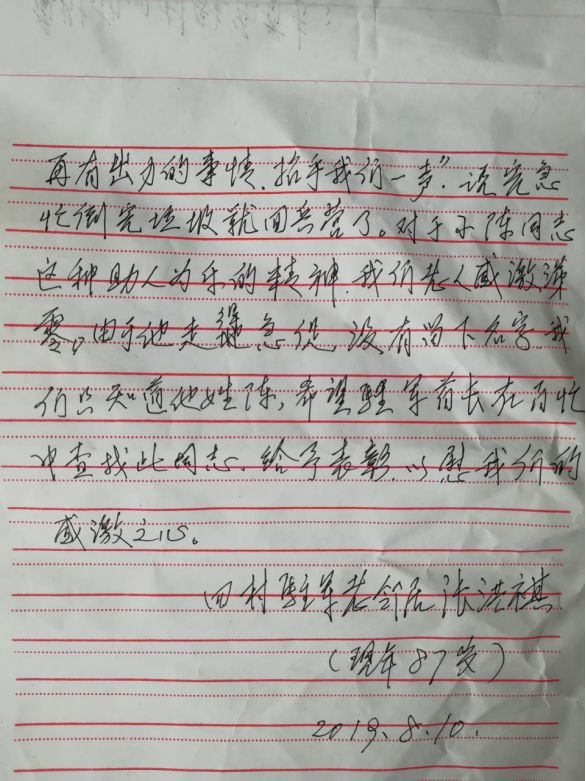 再有出力的事情、招手我们一声”，说完急
忙倒完垃圾就回兵营了。对于小陈同志
这种助人为乐的精神，我们老人感激涕
零，由于他走得急促，没有留下名字，我
们只知道他姓陈，希望驻军首长在百忙
中查找此同志，给予表彰，以慰我们的
感激之心。
田村驻军老邻居张洪祺
（现年87岁）
2019.8.10.